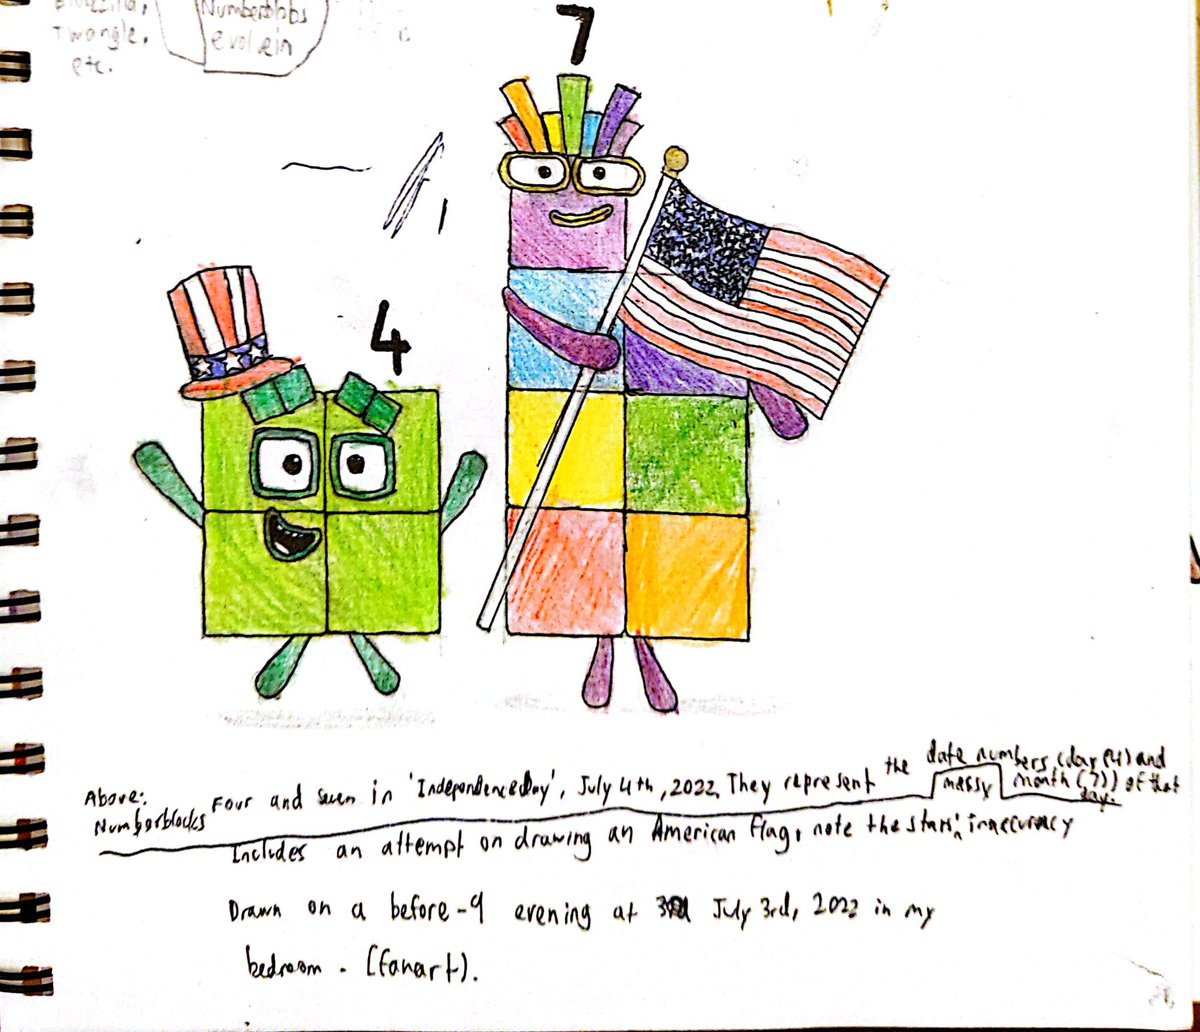 Numberblobs
Twangle,
evolve in
etc.
7
4
the date numbers (day (4) and
Above: Four and seven in 'Independence Day', July 4th, 2022. They represent messy month (7)) of that
Numberblocks day.
Includes an attempt on drawing an American flag, note the stars' inaccuracy
Drawn on a before-9 evening at July 3rd, 2022 in my
bedroom. (fanart).